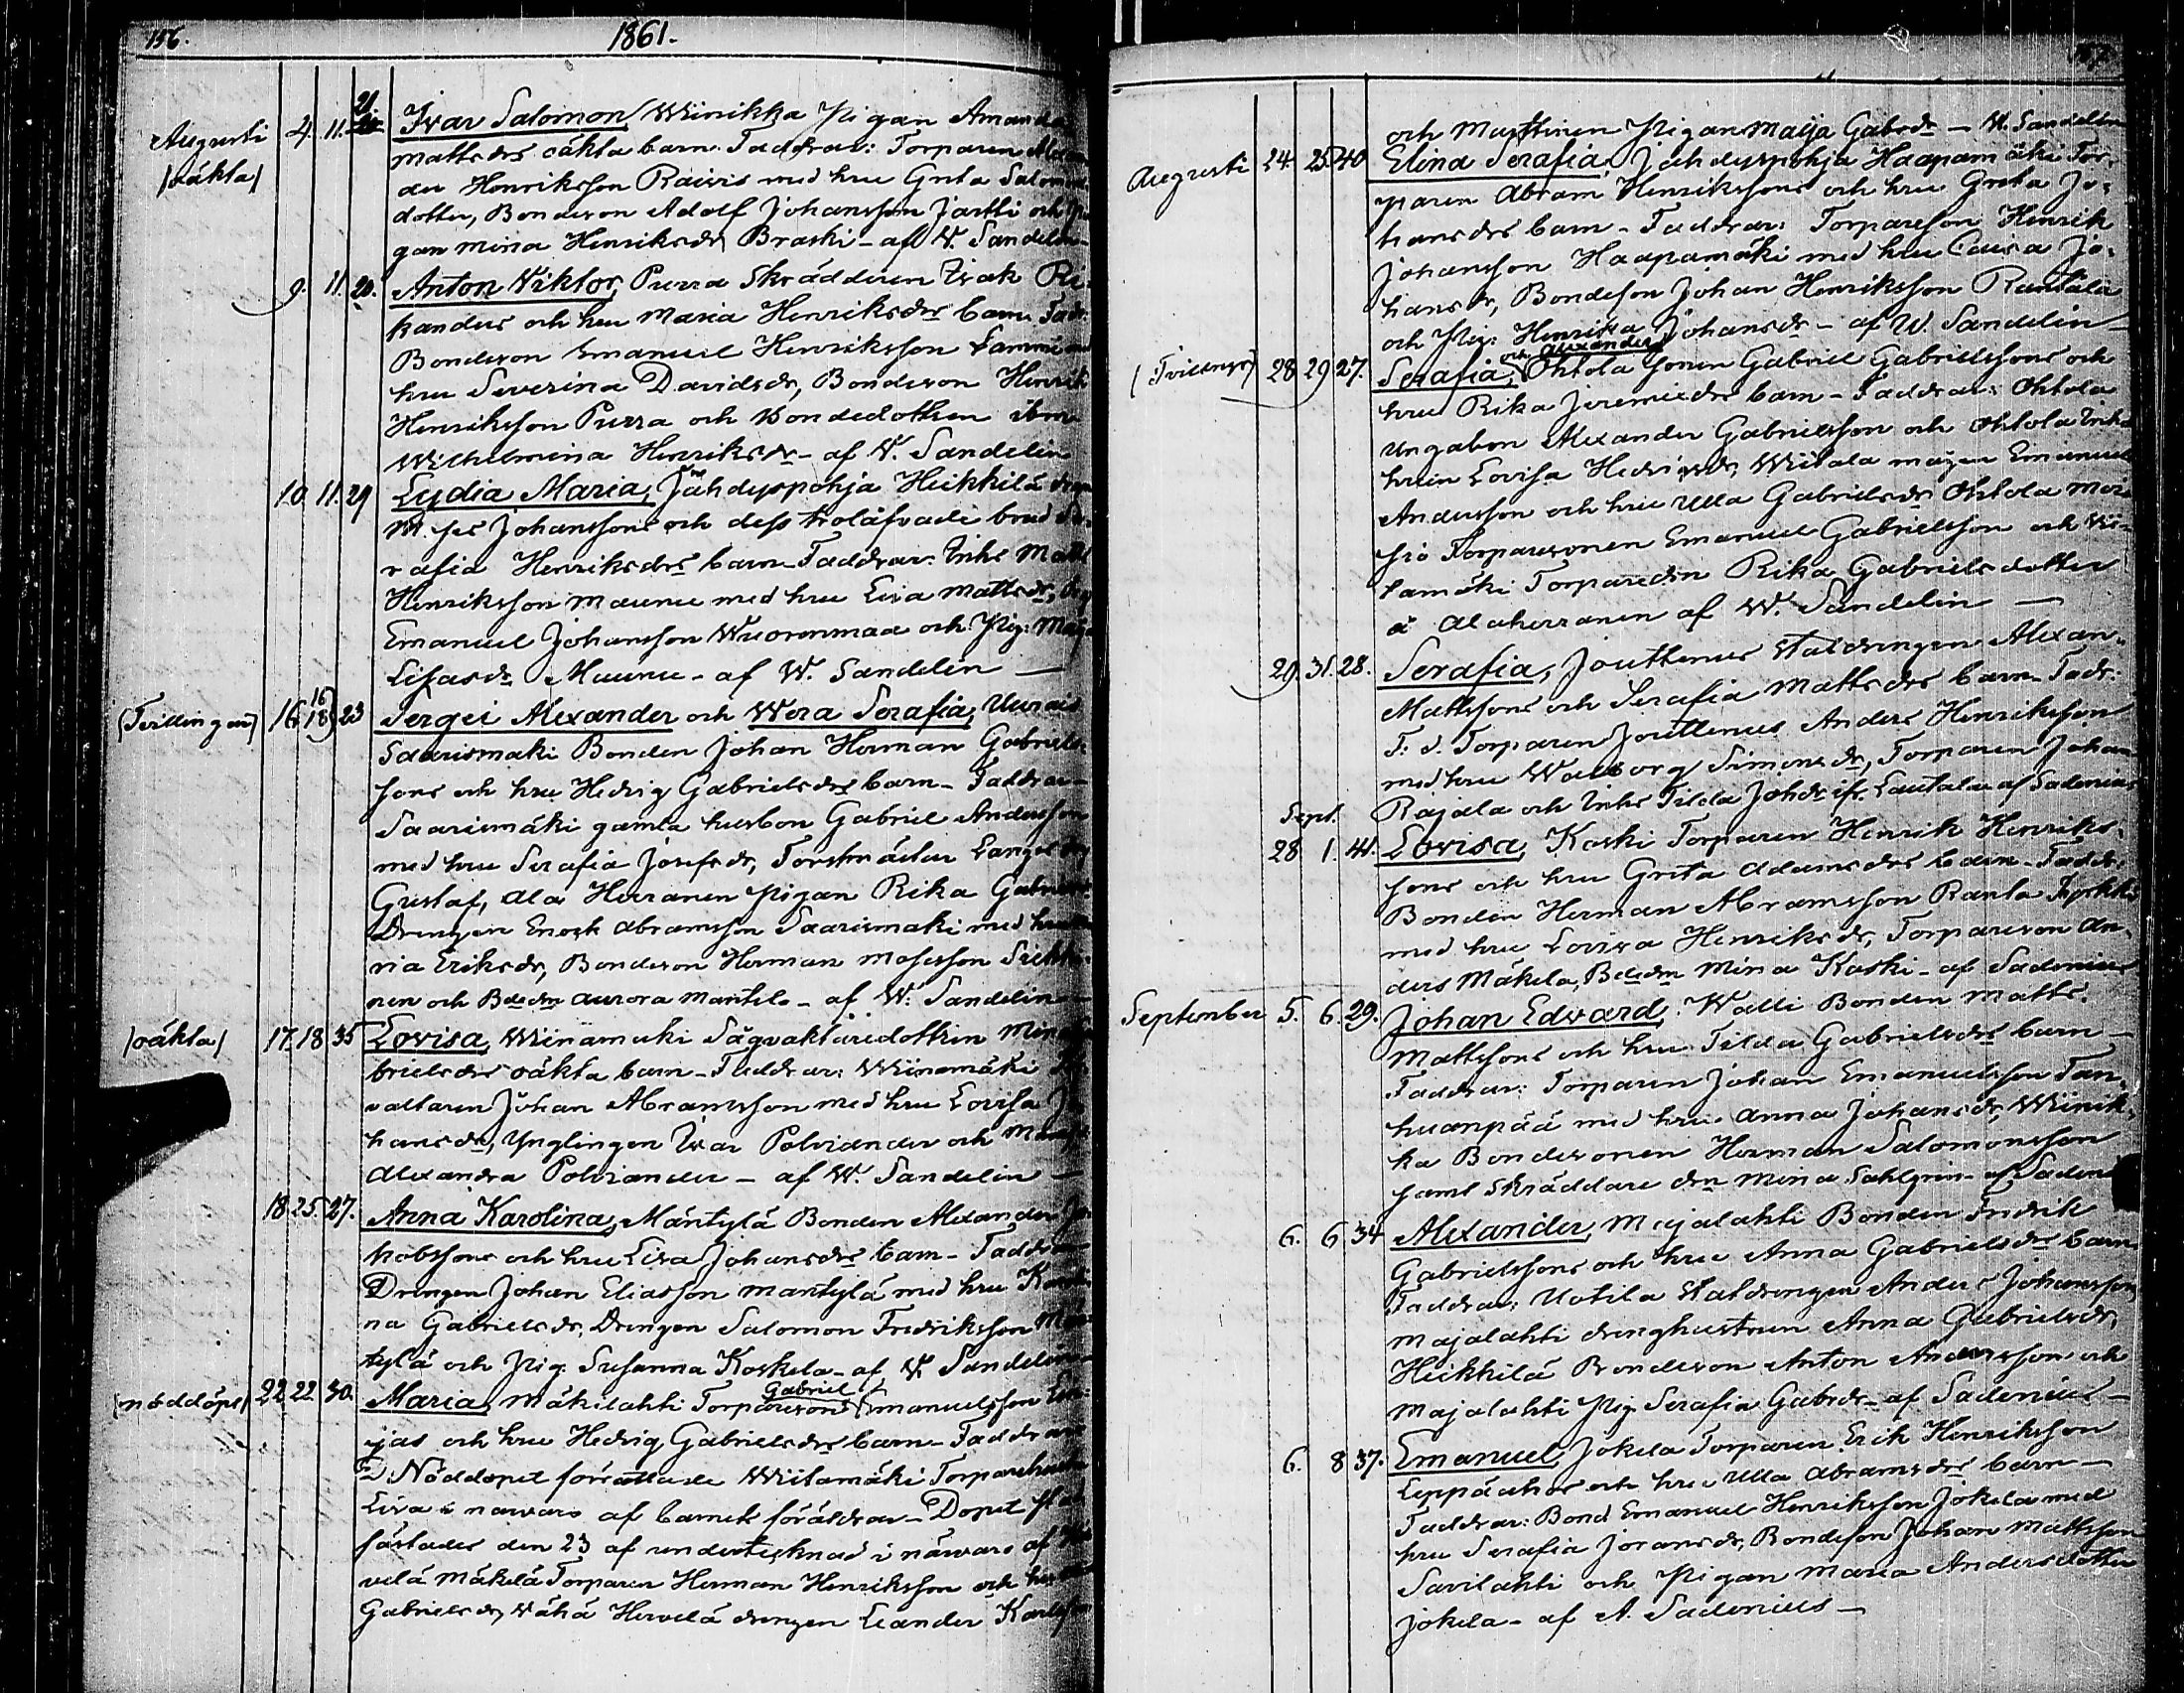 156.
1861.
Augusti 4. 11. 21. Ivar Salomon, Wiinikka Pigan Amanda
/oäkta/ Mattsdrs oäkta barn. Faddrar: Torparen
der Henriksson Raivis med hru Greta Salomons
dotter, Bondeson Adolf Johansson Jartti och Pi
gan Mina Henriksdr Braski - af W. Sandelin -
9. 11. 20. Anton Viktor, Purra Skrädderen Isak Ri
kanders och hru Maria Henriksdrs barn. Fadr:
Bondeson Emanuel Henriksson Lammi
hru Severina Davidsdr, Bondeson Henrik
Henriksson Purra och Bondedottren ibm
Wilhelmina Henriksdr - af W. Sandelin
10. 11. 29 Lydia Maria, Jähdyspohja Heikkilä
Johanssons och dess trolåfvade brud Se
rafia Henriksdrs barn - Faddrar: Inhs Matts
Henriksson Maunu med hru Lisa Mattsdr,
Emanuel Johansson Wuorenmaa och Pig: Maja
Lisasdr Maunu - af W. Sandelin —
(Tvillingar) 16. 16 18) 23 Sergei Alexander och Wera Serafia,
Saarismäki Bonden Johan Herman Gabriels
sons och hru Hedvig Gabrielsdrs barn - Faddrar -
Saarismäki gamla husbon Gabriel Andersson
med hru Serafia Josefsdr, Forstmästar
Gustaf, Ala Herranen Pigan Rika Gabriels
Drengen Enok Abramsson Saarismäki med hru
ria Eriksdr, Bondeson Herman Mosesson
nen och Bdedn Aurora Mantila - af W. Sandelin -
/oäkta/ 17. 18 35 Lovisa, Wiinamäki Sågvaktaredottren Mina
brielsdrs oäkta barn - Faddrar: Wiinamäki
valtaren Johan Abramsson med hru Lovisa Jo
hansdr, Ynglingen Ivar Polviander och
Alexandra Polviander - af W. Sandelin —
18. 25. 27. Anna Karolina, Mäntylä Bonden Alexander Ja
kobssons och hru Lisa Johansdrs barn - Faddrar
Drengen Johan Eliasson Mäntylä med hru Karoli
na Gabrielsdr, Drengen Salomon Fredriksson Män
tylä och Pig: Susanna Koskela - af W. Sandelin
(nöddöpt) 22. 22. 30. Maria, Mäkilahti Torpareson Gabriel Emanuelsson
jas och hru Hedvig Gabrielsdrs barn - Faddrar
Nöddopet förrättade Wiitamäki Torparehustru
Lisa i närvaro af barnets föräldrar - Dopet
fästades den 23 af undertecknad i närvaro af
velä Mäkelä Torparen Herman Henriksson och hru
Gabrielsdr, Wähä Hervelä drengen Leander Karlsson
och Marttinen Pigan Maija Gabrsdr - W. Sandelin
Augusti 24. 25. 40 Elina Serafia, Jähdyspohja Haapamäki Tor-
paren Abram Henrikssons och hru Greta Jo-
hansdrs barn - Faddrar: Torpareson Henrik
Johansson Haapamäki med hru Caisa Jo-
hansdr, Bondeson Johan Henriksson Rantala
och Pig: Henrika Johansdr - af W. Sandelin -
(Tvillingar) 28 29 27. Serafia, och Alexander Ohtola sonen Gabriel Gabrielssons och
hru Rika Jeremiedrs barn - Faddrar: Ohtola
Ungabon Alexander Gabrielsson och Ohtola Inhs
hruin Lovisa Hedvigsdr, Wiitala mågen Emanuel
Andersson och hru Ulla Gabrielsdr Ohtola
sio Torparesonen Emanuel Gabrielsson och
tamäki Torparedn Rika Gabrielsdotter
å Alaherranen af W. Sandelin —
29. 31. 28. Serafia, Jouttenus Statdrengen Alexan-
Mattssons och Serafia Mattsdrs barn - Fadr:
F. d. Torparen Jouttenus Anders Henriksson
med hru Walborg Simonsdr, Torparen Johan
Rajala och Inhs Tilda Johdr ifr. Lautala af Sadenius
Sept.
28 1. 41. Lovisa, Koski Torparen Henrik Henriks-
sons och hru Greta Adamsdrs barn - Faddr:
Bonden Herman Abramsson Ranta
med hru Lovisa Henriksdr, Torpareson An-
ders Mäkelä, Bdedn Mina Koski - af Sadenius
September 5. 6. 29. Johan Edvard, Walli Bonden Matts
Mattssons och hru Tilda Gabrielsdrs barn -
Faddrar: Torparen Johan Emanuelsson Tan-
huanpää med hru Anna Johansdr, Wiinik-
ka Bondesonen Herman Salomonsson
samt Skräddare dn Mina Sahlgren - af Sadeni
6. 6 34 Alexander, Majalahti Bonden Fredrik
Gabrielssons och hru Anna Gabrielsdrs barn
Faddrar: Uotila Statdrengen Anders Johansson
Majalahti drenghustrun Anna Gabrielsdr,
Heikkilä Bondeson Anton Andersson och
Majalahti Pig. Serafia Gabrdr - af Sadenius -
6. 8 37. Emanuel, Jokela Torparen Erik Henriksson
Leppäahos och hru Ulla Abramsdrs barn -
Faddrar: Bond Emanuel Henriksson Jokela med
hru Serafia Joransdr, Bondeson Johan Mattsson
Savilahti och Pigan Maria Andersdotter
Jokela - af A. Sadenius -